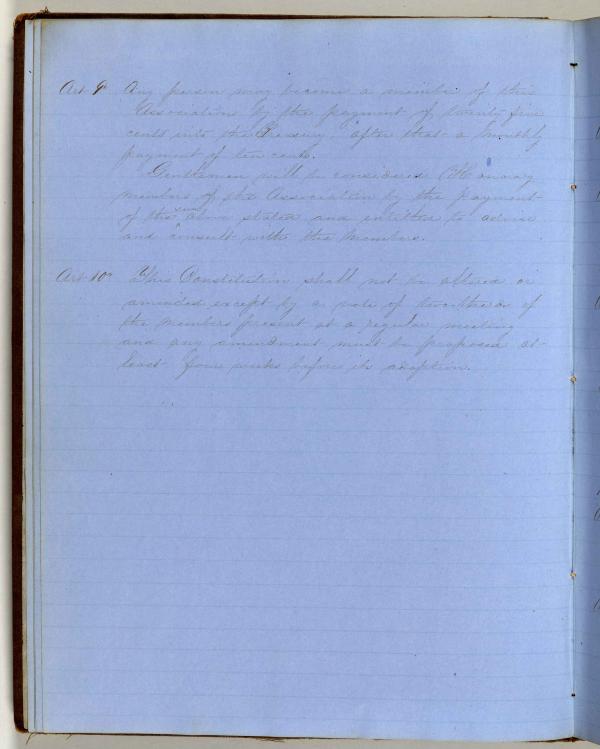 Art 9th Any person may become a member of this
Association by the payment of twenty five
cents into the Treasury. after that a monthly
payment of ten cents.
Gentlemen will be considered Honorary
members of the Association by the payment
of the sum above stated and entitled to advise
and consult with the Members.
Art 10th This Constitution shall not be altered or
amended except by a vote of two thirds of
the members present at a regular meeting
and any amendment must be proposed at
least four weeks before its adoption.